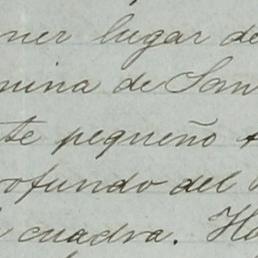 mer lugar de
mina de San
te pequeño
rofundo del
cuadra. Ha